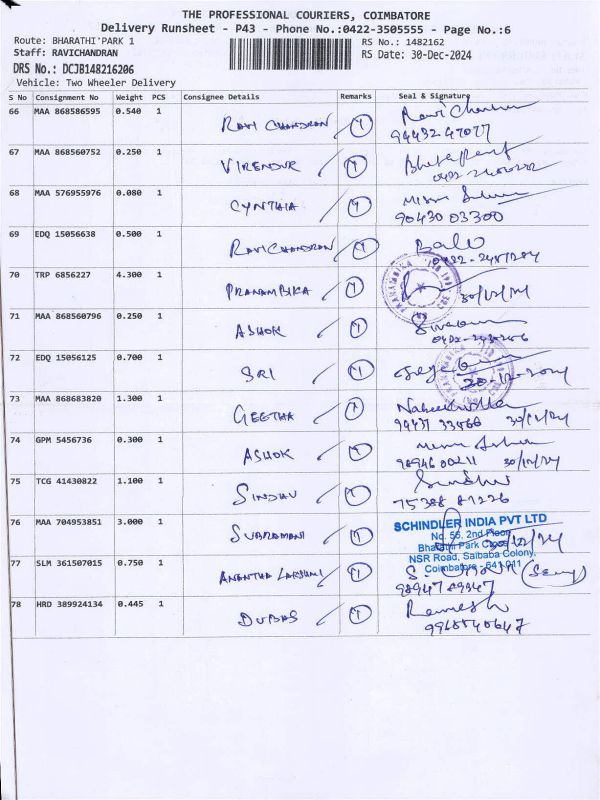 THE PROFESSIONAL COURIERS, COIMBATORE
Delivery Runsheet - P43 - Phone No.:0422-3505555 - Page No.:6
Route: BHARATHI PARK 1
RS No.: 1482162
Staff: RAVICHANDRAN
RS Date: 30-Dec-2024
DRS No.: DCJB148216206
Vehicle: Two Wheeler Delivery
S No Consignment No Weight PCS Consignee Details Remarks Seal & Signature
66 MAA 868586595 0.540 1 RAVI CHANDRAN Y Ravi Chandran
94432 47077
67 MAA 868560752 0.250 1 VIRENDUR Y
68 MAA 576955976 0.080 1 CYNTHIA Y
90430 03300
69 EDQ 15056638 0.500 1 RAVICHANDRAN Y Balu
70 TRP 6856227 4.300 1 PRANAMBIKA Y
30/12/24
71 MAA 868560796 0.250 1 ASHOK Y
72 EDQ 15056125 0.700 1 SRI Y
30-12-2024
73 MAA 868683820 1.300 1 GEETHA Y
94431 33466 30/12/24
74 GPM 5456736 0.300 1 ASHOK Y
98946 00211 30/12/24
75 TCG 41430822 1.100 1 SINDHU Y Sindhu
75388 81226
76 MAA 704953851 3.000 1 SUBRAMANI Y SCHINDLER INDIA PVT LTD
No. 56, 2nd Floor
Bharathi Park Cross
NSR Road, Saibaba Colony,
Coimbatore - 641 011
30/12/24
77 SLM 361507015 0.750 1 ANANTHA LAKSHMI Y
98947 89347
78 HRD 389924134 0.445 1 DUBAS Y Ramesh
9968540647